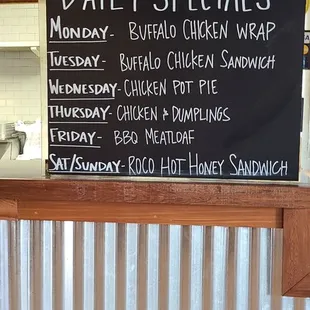 DAILY SPECIALS
MONDAY- BUFFALO CHICKEN WRAP
TUESDAY- BUFFALO CHICKEN SANDWICH
WEDNESDAY- CHICKEN POT PIE
THURSDAY- CHICKEN & DUMPLINGS
FRIDAY- BBQ MEATLOAF
SAT/SUNDAY- ROCO HOT HONEY SANDWICH